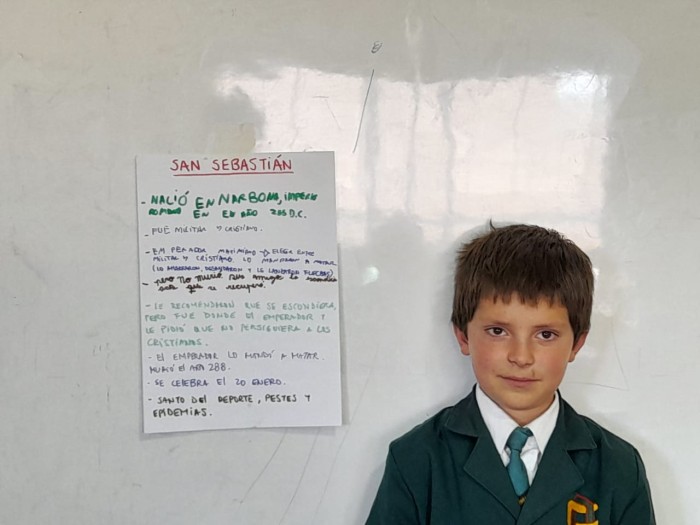 SAN SEBASTIÁN
- NACIÓ EN NARBONA, IMPERIO
ROMANO EN EL AÑO 256 D.C.
- FUÉ MILITAR Y CRISTIANO.
- EMPERADOR MAXIMIANO ELEGIR ENTRE
MILITAR Y CRISTIANO LO MANDARON A MATAR
(LO AMARRARON, DESNUDARON Y LE LANZARON FLECHAS)
- pero no murió sus amigos lo
se recuperó.
- LE RECOMENDARON QUE SE ESCONDIERA,
PERO FUE DONDE EL EMPERADOR Y
LE PIDIÓ QUE NO PERSIGUIERA A LOS
CRISTIANOS.
- EL EMPERADOR LO MANDÓ A MATAR.
MURIÓ EL AÑO 288.
- SE CELEBRA EL 20 ENERO.
- SANTO DEL DEPORTE, PESTES Y
EPIDEMIAS.